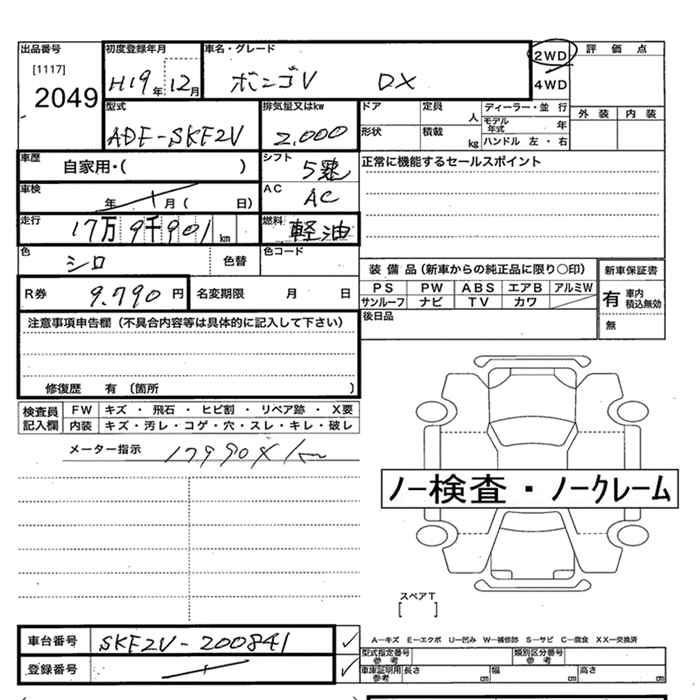 出品番号 初度登録年月 車名・グレード 2WD 評価点
[1117] H19年12月 ボンゴV DX 4WD
2049
型式 排気量又はkw ドア 定員 人 ディーラー・並行 外装 内装
ADF-SKF2V 2,000 形状 積載 kg モデル年式 年
ハンドル 左・右
車歴 自家用・( ) シフト 5速 正常に機能するセールスポイント
車検 年 / 月( 日) AC AC
走行 17万9千901km 燃料 軽油
色 シロ 色替 色コード
装備品(新車からの純正品に限り○印) 新車保証書
R券 9.790円 名変期限 月 日 PS PW ABS エアB アルミW 有 車内積込無効
サンルーフ ナビ TV カワ
注意事項申告欄(不具合内容等は具体的に記入して下さい) 後日品 無
修復歴 有 〔箇所 〕
検査員記入欄 FW キズ・飛石・ヒビ割・リペア跡・X要
内装 キズ・汚レ・コゲ・穴・スレ・キレ・破レ
メーター指示 179908km
ノー検査・ノークレーム
スペアT
[ ]
車台番号 SKF2V-200841 ✓ A―キズ E―エクボ U―凹み W―補修跡 S―サビ C―腐食 XX―交換済
型式指定番号 参考 類別区分番号 参考
登録番号 / ✓ 車庫証明用 参考 長さ cm 幅 cm 高さ cm